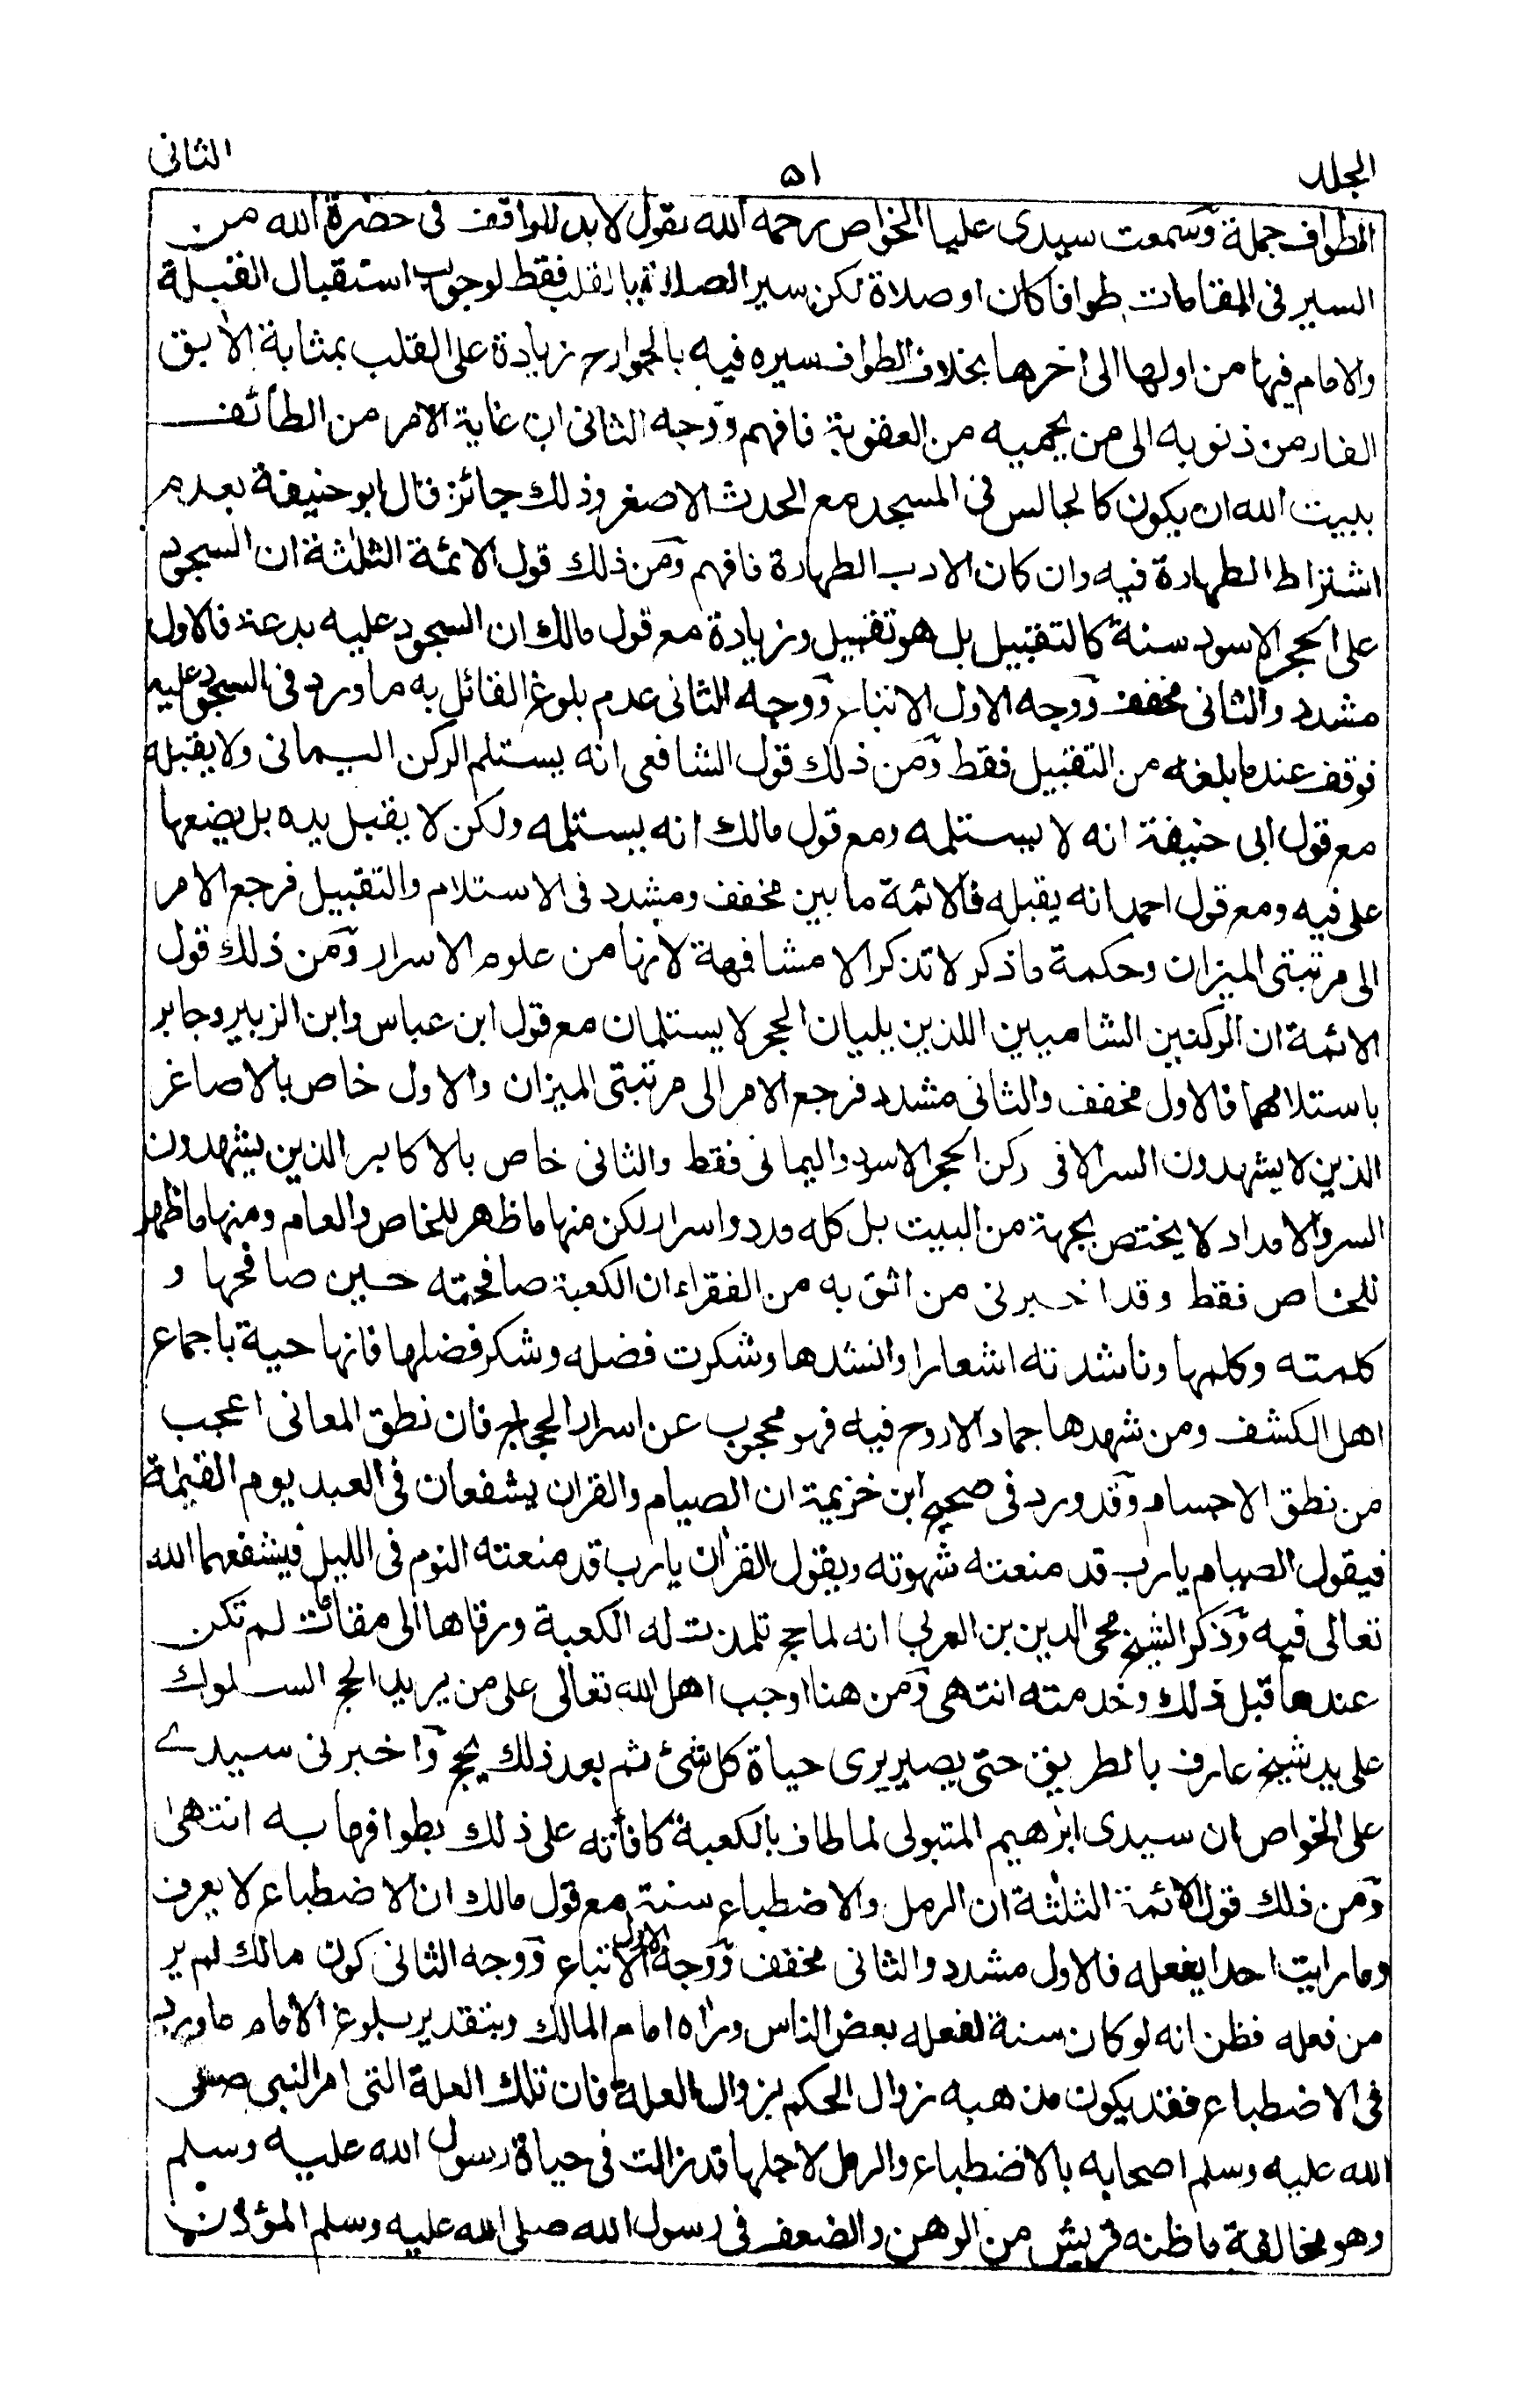 المجلد ٥١ الثانى
الطواف جملة وسمعت سيدى عليا الخواص رحمه الله يقول لا بد للواقف فى حضرة الله من
السير فى المقامات طوافا كان او صلاة لكن سير الصلاة بالقلب فقط لوجوب استقبال القبلة
والامام فيها من اولها الى اخرها بخلاف الطواف سيره فيه بالجوارح زيادة على القلب بمثابة الأبق
الفار من ذنوبه الى من يحميه من العقوبة فافهم ووجه الثانى ان غاية الامر من الطائف
ببيت الله ان يكون كالجالس فى المسجد مع الحدث الاصغر وذلك جائز قال ابو حنيفة بعدم
اشتراط الطهارة فيه وان كان الادب الطهارة فافهم ومن ذلك قول الائمة الثلثة ان السجود
على الحجر الاسود سنة كالتقبيل بل هو تقبيل وزيادة مع قول مالك ان السجود عليه بدعة فالاول
مشدد والثانى مخفف ووجه الاول الاتباع ووجه الثانى عدم بلوغ القائل به ما ورد فى السجود عليه
فوقف عند ما بلغه من التقبيل فقط ومن ذلك قول الشافعى انه يستلم الركن اليمانى ولا يقبله
مع قول ابى حنيفة انه لا يستلمه ومع قول مالك انه يستلمه ولكن لا يقبل يده بل يضعها
على فيه ومع قول احمد انه يقبله فالائمة ما بين مخفف ومشدد فى الاستلام والتقبيل فرجع الامر
الى مرتبتى الميزان وحكمة ما ذكر لا تذكر الا مشافهة لانها من علوم الاسرار ومن ذلك قول
الائمة ان الركنين الشاميين اللذين يليان الحجر لا يستلمان مع قول ابن عباس وابن الزبير وجابر
باستلامهما فالاول مخفف والثانى مشدد فرجع الامر الى مرتبتى الميزان والاول خاص بالاصاغر
الذين لا يشهدون السر الا فى ركن الحجر الاسود واليمانى فقط والثانى خاص بالاكابر الذين يشهدون
السر والامداد لا يختص بجهة من البيت بل كله مدد واسرار لكن منها ما ظهر للخاص والعام ومنها ما ظهر
للخاص فقط وقد اخبرنى من اثق به من الفقراء ان الكعبة صافحته حين صافحها و
كلمته وكلمها وناشدته اشعارا وانشدها وشكرت فضله وشكر فضلها فانها حية باجماع
اهل الكشف ومن شهدها جماد الا روح فيه فهو محجوب عن اسرار الحج فان نطق المعانى اعجب
من نطق الاجسام وقد ورد فى صحيح ابن خزيمة ان الصيام والقران يشفعان فى العبد يوم القيمة
فيقول الصيام يا رب قد منعته شهوته ويقول القران يا رب قد منعته النوم فى الليل فيشفعهما الله
تعالى فيه وذكر الشيخ محى الدين بن العربي انه لما حج تلمذت له الكعبة ورقاها الى مقامات لم تكن
عندها قبل ذلك وخدمته انتهى ومن هنا اوجب اهل الله تعالى على من يريد الحج السلوك
على يد شيخ عارف بالطريق حتى يصير يرى حياة كل شئ ثم بعد ذلك يحج واخبرنى سيدے
على الخواص ان سيدى ابرهيم المتبولى لما طاف بالكعبة كافأته على ذلك بطوافها به انتهى
ومن ذلك قول الائمة الثلثة ان الرمل والاضطباع سنة مع قول مالك ان الاضطباع لا يعرف
وما رايت احدا يفعله فالاول مشدد والثانى مخفف ووجه الاول الاتباع ووجه الثانى كون مالك لم ير
من فعله فظن انه لو كان سنة لفعله بعض الناس وراه امام المالك وبتقدير بلوغ الامام ما ورد
فى الاضطباع فقد يكون مذهبه زوال الحكم بزوال العلة فان تلك العلة التى امر النبى صلى
الله عليه وسلم اصحابه بالاضطباع والرمل لاجلها قد زالت فى حياة رسول الله عليه وسلم
وهو مخالفة ما ظنه قريش من الوهن والضعف فى رسول الله صلى الله عليه وسلم